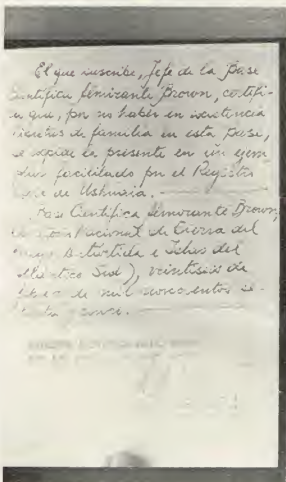 El que suscribe, Jefe de la Base
Científica Almirante Brown, certifi-
ca que, por no haber en existencia
libretas de familia en esta Base,
se expide la presente en un ejem
plar facilitado por el Registro
de Ushuaia.
Base Científica Almirante Brown,
Nacional de Tierra del
Antártida e Islas del
Atlántico Sud), veintiseis de
de mil novecientos se-